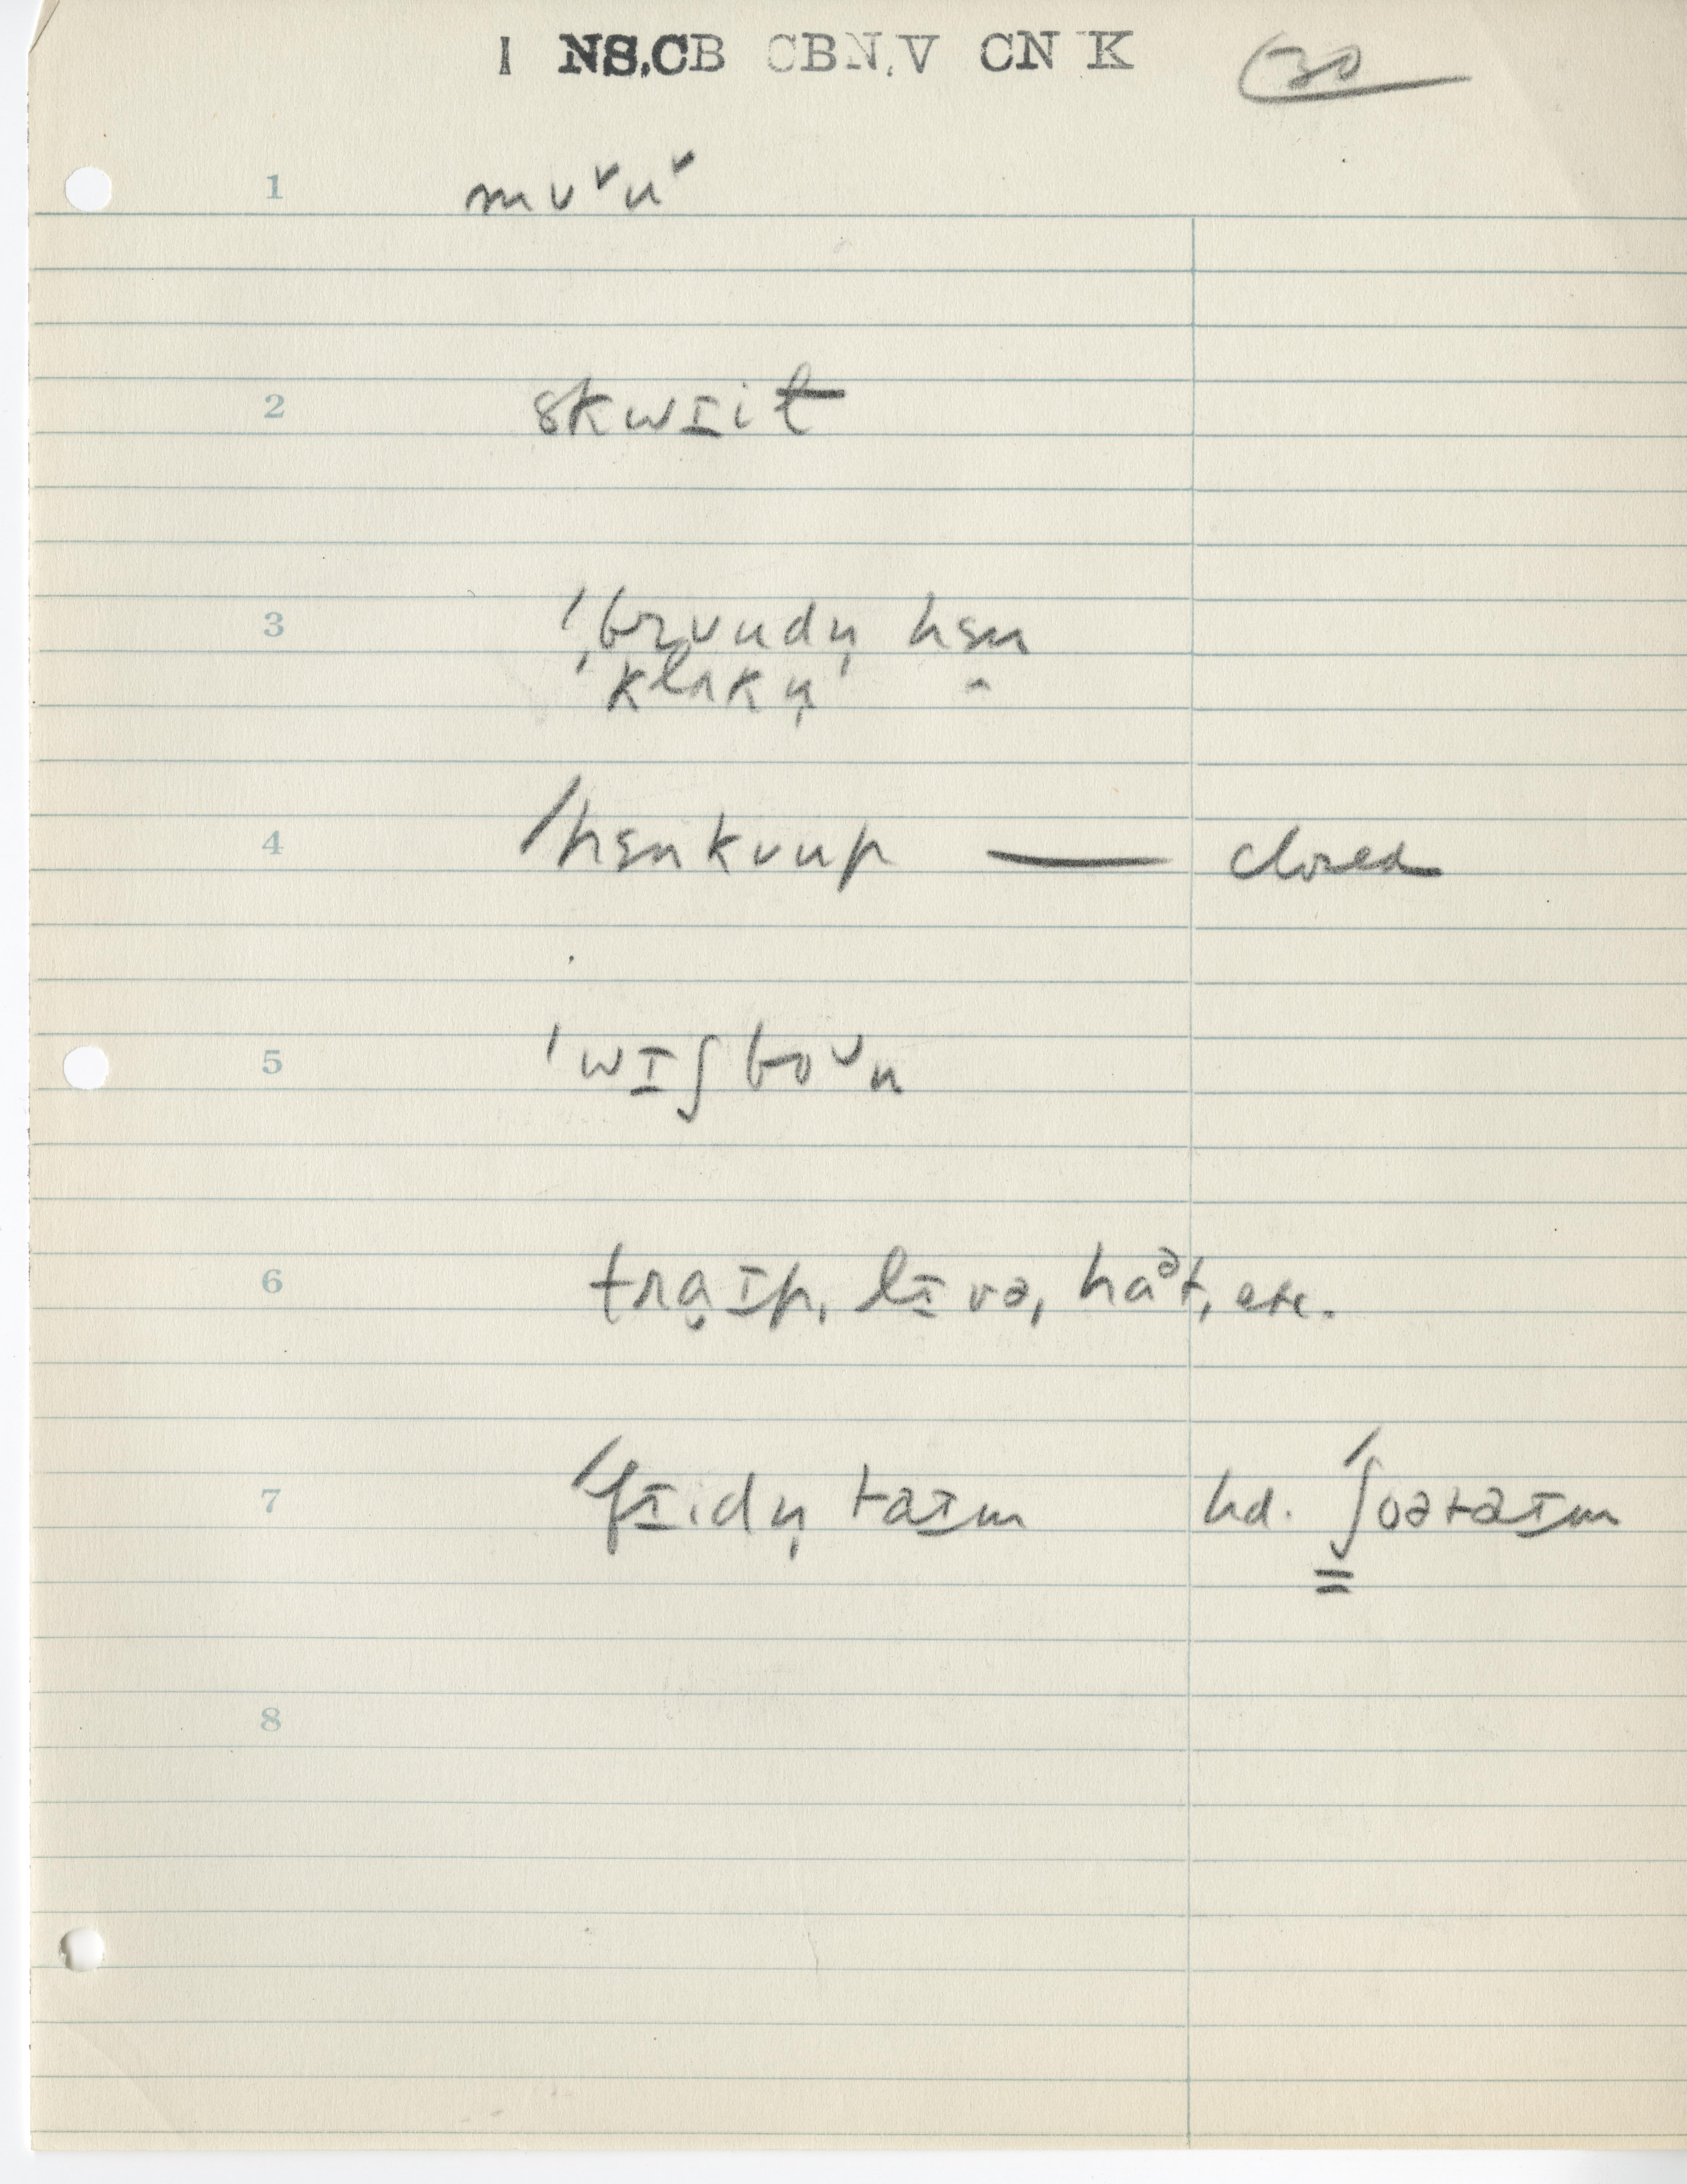 I NS,CB CBN,V CN K 30
1 mʊˇuˇ
2 skwɪit
3 ˈbrʊudṇ hɛn
ˈklʌkṇ ˄
4 ˈhɛnkʊup — closed
5 ˈwɪʃboˇn
6 traɪp, lɪvə, haᵊt, etc.
7 ˈfɪidṇ taɪm hd. ˈʃoətaɪm
8